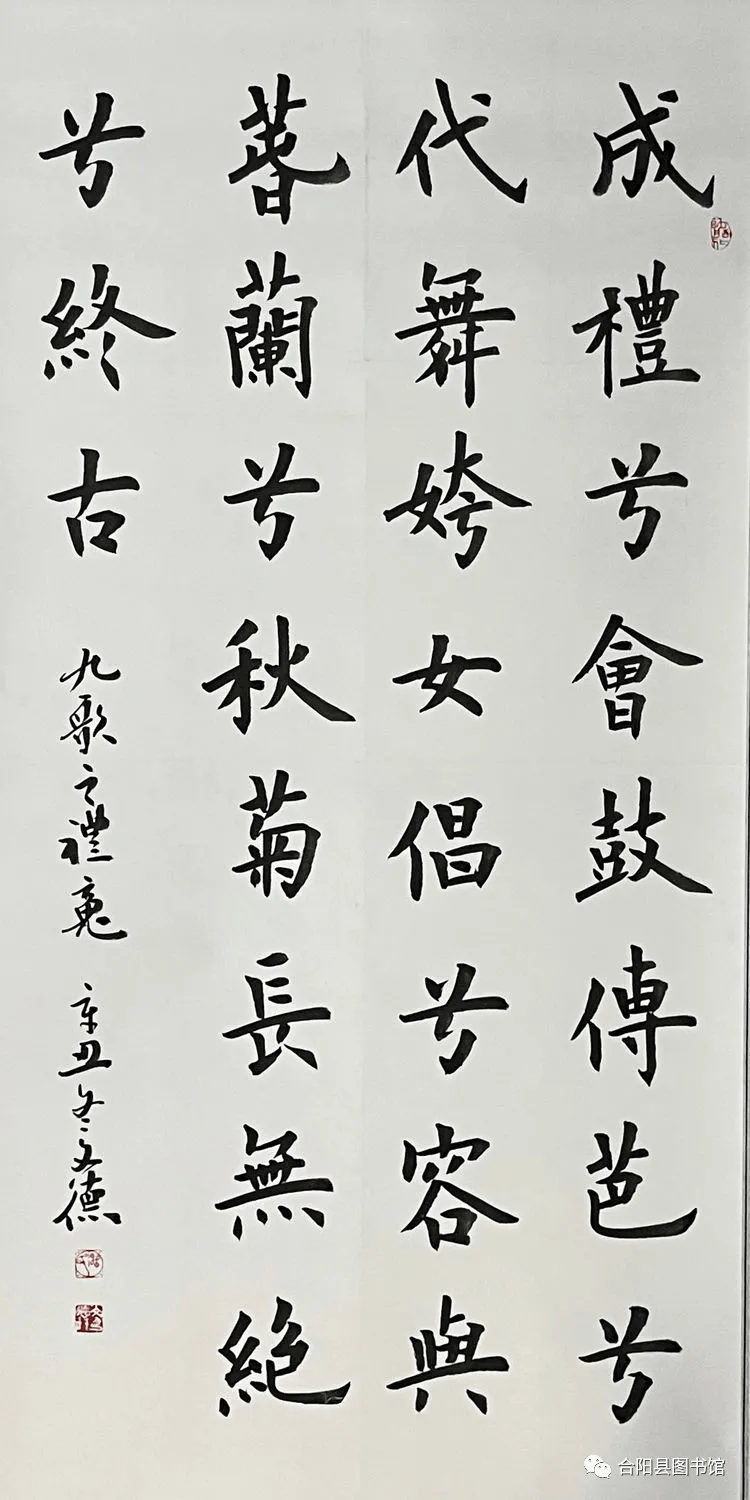 成禮兮會鼓傳芭兮
代舞姱女倡兮容與
萅蘭兮秋菊長無絶
兮終古
九歌之禮䰟 辛丑冬文德
合阳县图书馆